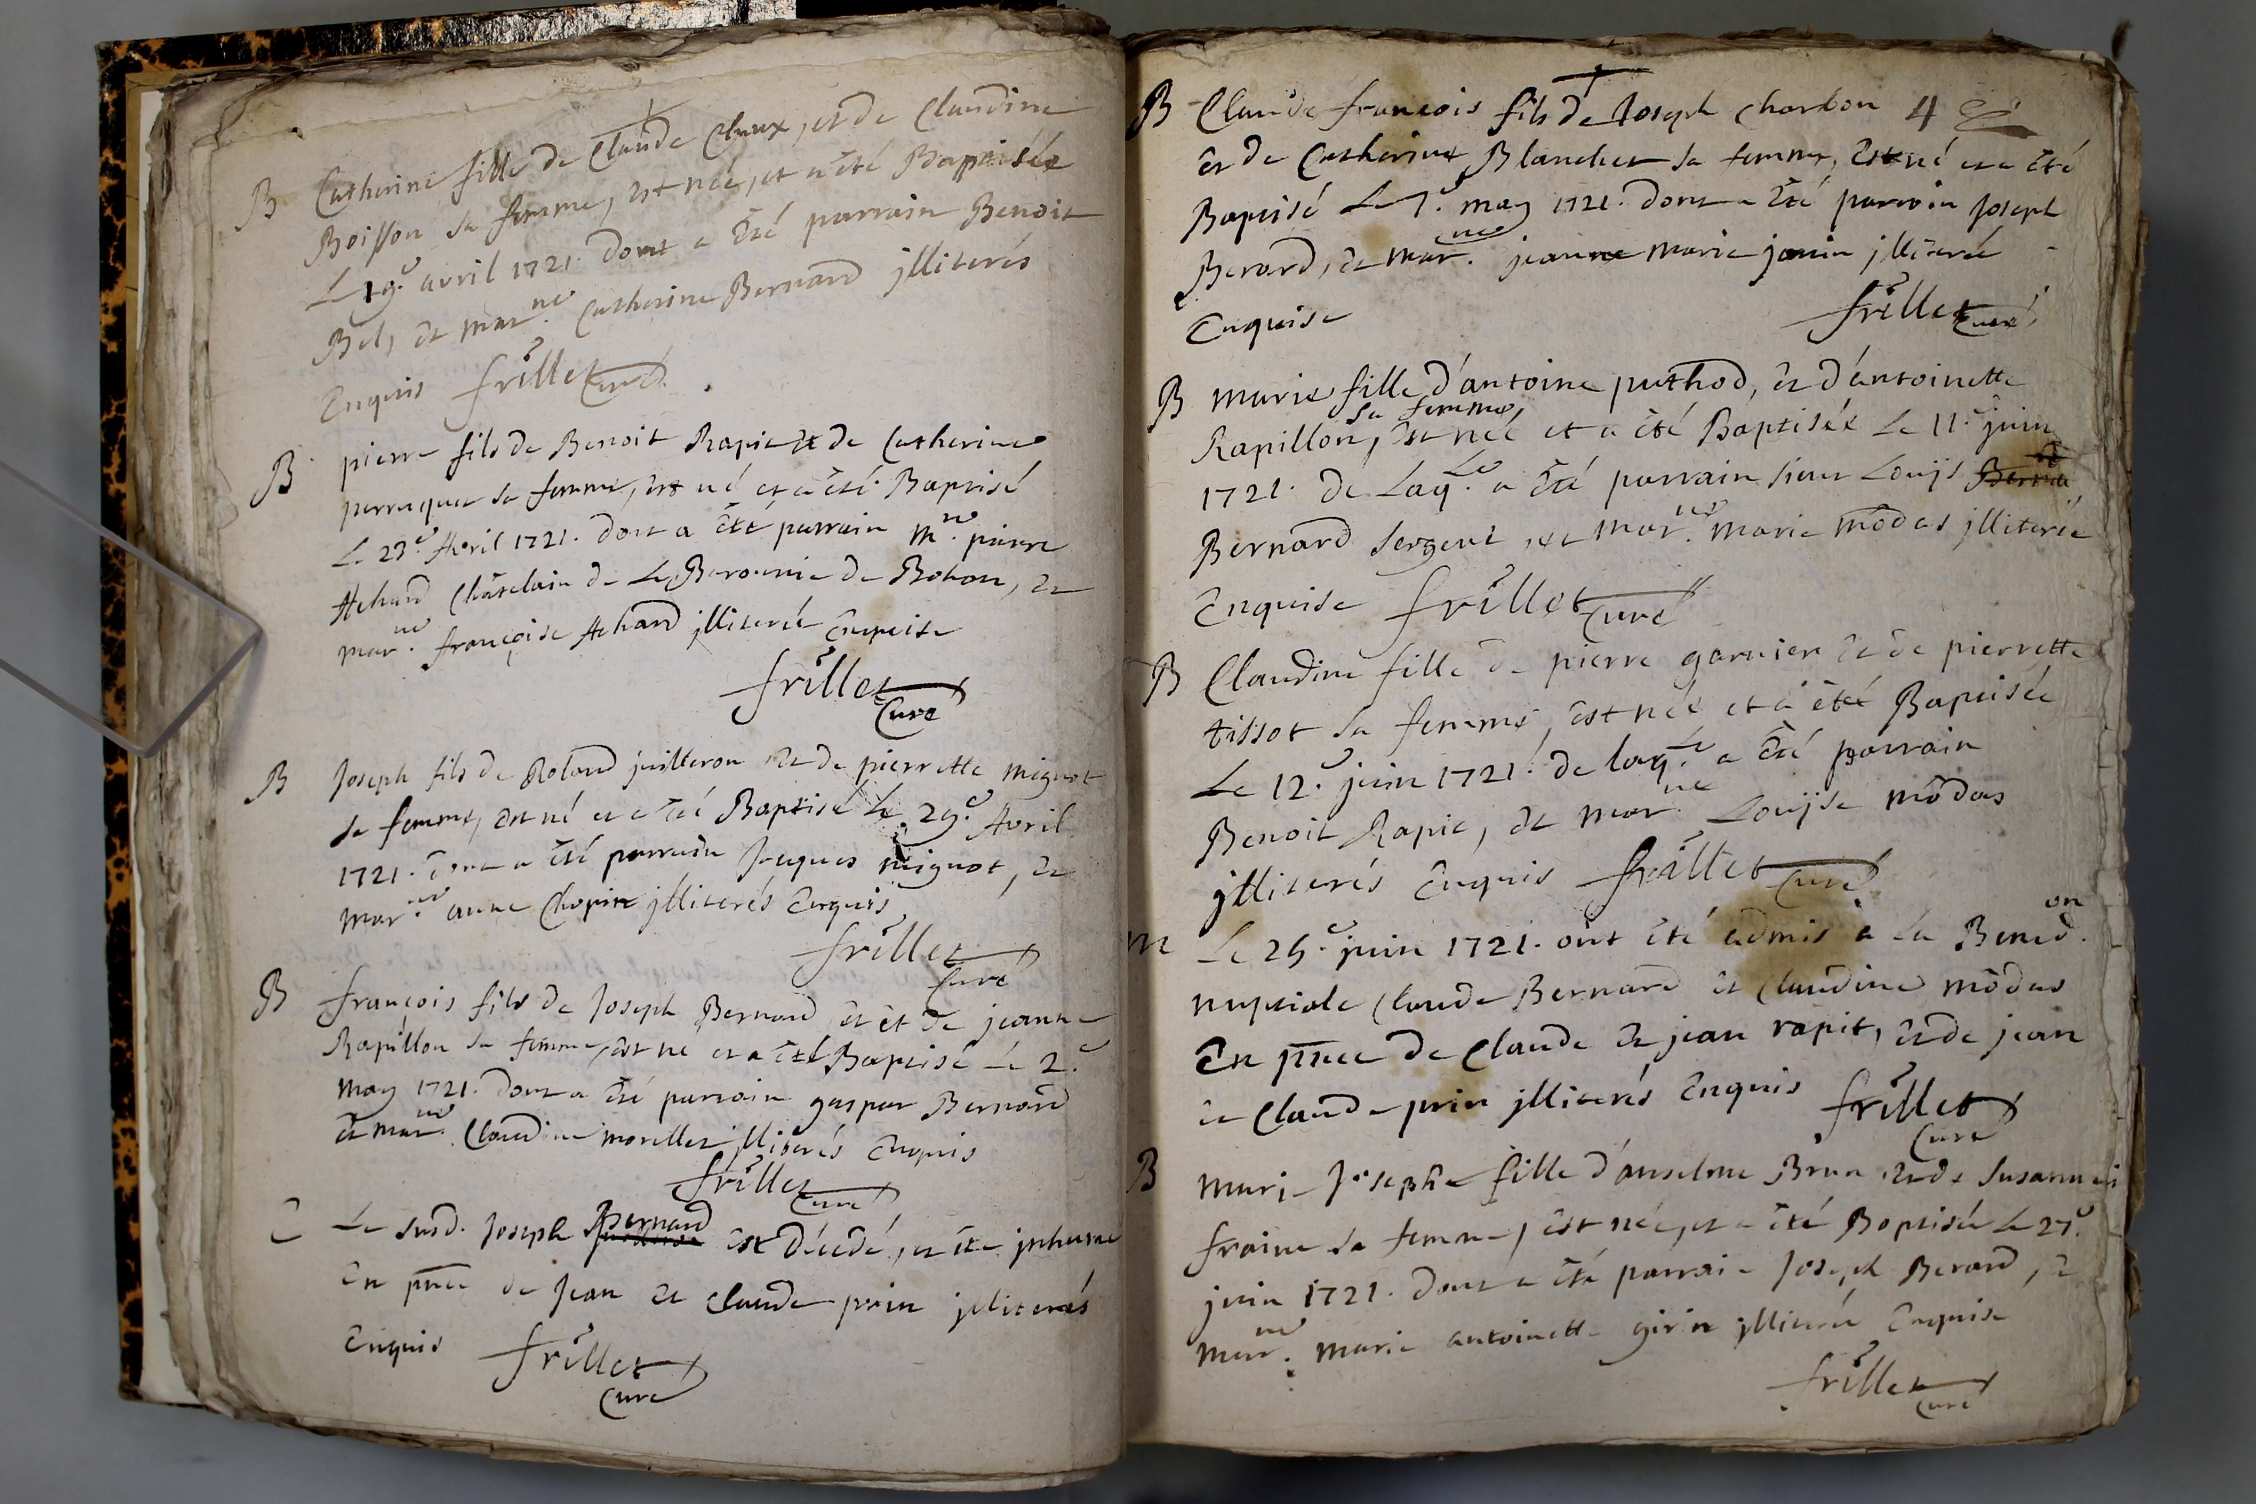 B Catherine fille de Claude Claux, et de Claudine
Boisson sa femme, est née, et a été Baptisée
Le 19.e avril 1721. dont a été parrain Benoit
Bel, et mar.ne Catherine Bernard jlliterés
Enquis frillet Curé
B pierre fils de Benoit Rapie et de Catherine
perruquet sa femme, est né et a été Baptisé
Le 23.e Avril 1721. dont a été parrain m.re pierre
Achard Châtelain de La Baronnie de Bohan, et
mar.ne françoise Achard jlliterée Enquise
frillet
Curé
B Joseph fils de Roland juilleron et de pierrette mignot
sa femme, est né et a été Baptisé Le 29.e Avril
1721. dont a été parrain Jacques mignot, et
mar.ne anne Chapin jlliterés Enquis
frillet
Curé
B françois fils de Joseph Bernard, et et de jeanne
Rapillon sa femme, est né et a été Baptisé Le 2.e
may 1721. dont a été parrain gaspar Bernard
et mar.ne Claudine morellet jlliterés Enquis
frillet
Curé
Le susd. Joseph Bernard est décédé, et été jnhumé
En pnce de Jean et Claude prin jlliterés
Enquis frillet
Curé
B Claude françois fils de Joseph Charbon 4
et de Catherine Blanchet sa femme, Est né et a été
Baptisé Le 7.e may 1721. dont a été parrain Joseph
Berard, et mar.ne jeanne marie janin jlliterée
Enquise frillet Curé
B marie fille d'antoine puthod, et d'antoinette
Rapillon sa femme, est née et a été Baptisée Le 11.e juin
1721. de Laq.le a été parrain sieur Louijs
Bernard sergent, et mar.ne marie môdas jlliterée
Enquise frillet Curé
B Claudine fille de pierre garnier et de pierrette
tissot sa femme, est née et a été Baptisée
Le 12.e juin 1721. de laq.le a été parrain
Benoit Rapie, et mar.ne Louijse môdas
jlliterés Enquis frillet Curé
m Le 25.e juin 1721. ont été admis à la Bened.on
nuptiale Claude Bernard et Claudine môdas
En pnce de Claude et jean rapit, et de jean
et Claude prin jlliterés Enquis frillet
Curé
B marie Josephe fille d'anselme Brun et de Susanne
fraine sa femme, est née, et a été Baptisée Le 27.e
juin 1721. dont a été parrain Joseph Berard, et
mar.ne marie antoinette girin jlliterée Enquise
frillet
Curé